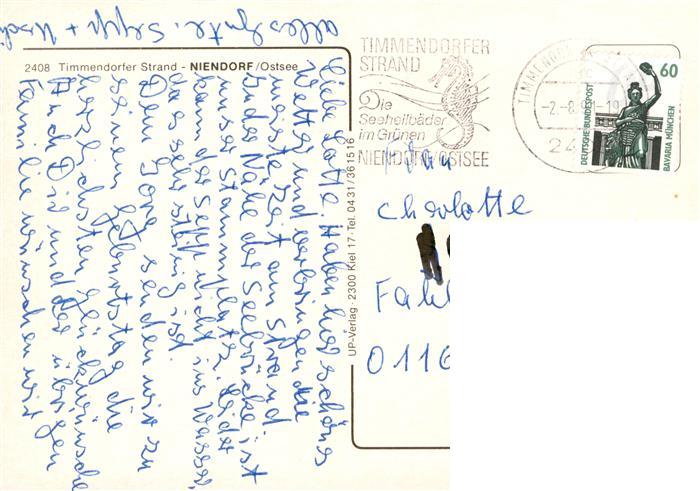 2408 Timmendorfer Strand - NIENDORF/Ostsee
Liebe Lotte. Haben hier schönes
Wetter und verbringen die
meiste Zeit am Strand.
In der Nähe der Seebrücke ist
unser Stammplatz. Leider
kann der Sepp nicht ins Wasser,
da es sehr stürmig ist.
Dem Jörg senden wir zu
seinem Geburtstag die
herzlichsten Glückwünsche
Auch Dir und der übrigen
Familie wünschen wir
alles Gute. Sepp + Uschi
UP-Verlag · 2300 Kiel 17 · Tel. 04 31/36 15 16
TIMMENDORFER
STRAND
Die
Seeheilbäder
im Grünen
NIENDORF/OSTSEE
-2.-8.
24
60
DEUTSCHE BUNDESPOST
BAVARIA MÜNCHEN
Frau
Charlotte
0116